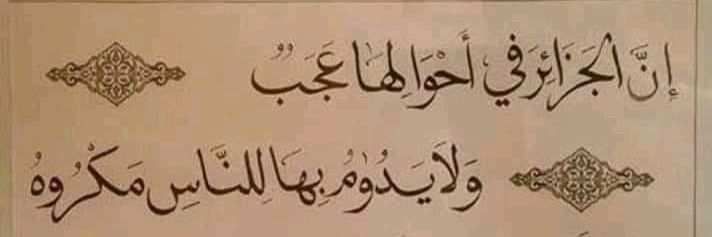 إِنَّ الْجَزَائِرَ فِي أَحْوَالِهَا عَجَبٌ
وَلَا يَدُومُ بِهَا لِلنَّاسِ مَكْرُوهُ